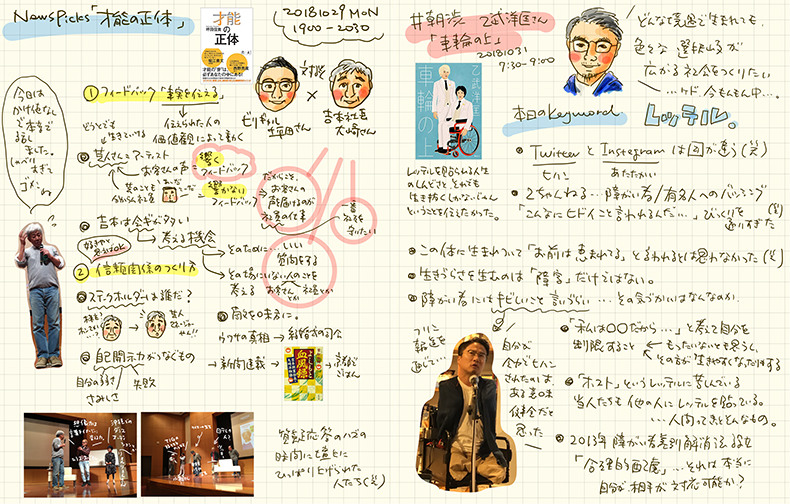 NewsPicks「才能の正体」
20181029 MON
1900-2030
才能の正体
坪田信貴
対談
ビリギャル
坪田さん
×
吉本社長
大﨑さん
今日は
かけ値なし
で本音で
話し
ました。
しゃべり
すぎて
ゴメンね
① フィードバック「事実を伝える」
伝えられた人の
価値観によって動く
どうとでも
生きている
◎ 芸人さん＝アーティスト
お客さんの声＝響く
フィードバック
響かない
フィードバック
だからこそ、
お客さんの
声を届けるのが
社員の仕事
一番
◎ 吉本は会議が多い
考える機会
そのために…いい
質問をする
その場にいない人のことを
考える
お客さんとか
社員とか
② 信頼関係のつくり方
◎ ステークホルダーは誰だ？
◎ 自己開示力がつなぐもの
自分の弱さ/失敗
さみしさ
◎ 敵を味方に。
ウワサの真相→結婚式の司会
→新聞連載→
血風録
質疑応答のハズの
時間に壇上に
ひっぱり上げられた
人たち(笑)
#朝渋 乙武洋匡さん
「車輪の上」
20181031
7:30-9:00
どんな境遇で生まれても、
色々な選択肢が
広がる社会をつくりたい
…ケド、今もんもん中…。
乙武洋匡
車輪の上
本日のkeyword レッテル。
レッテルを貼られる人生
のしんどさと、それでも
生き抜くしかないじゃん
ということを伝えたかった。
◎ TwitterとInstagramは国が違う(笑)
ヒハン
あたたかい
◎ 2ちゃんねる…障がい者/有名人へのバッシング
「こんなにヒドイこと言われるんだ…」びっくりを
通りすぎた(笑)
◎ この体に生まれついて「お前は恵まれてる」と言われるとは思わなかった(笑)
◎ 生きづらさを生むのは「障害」だけではない。
◎ 障がい者にはキビしいこと言いづらい…その気づかいはなんなのか。
フリン
報道を
通じて…
自分が
全力でヒハン
されたのは
ある意味
健全だと
思った
◎「私は〇〇だから…」と考えて自分を
制限すること
もったいないとも思うし、
その方が生きやすくなったりする
◎「ホスト」というレッテルに苦しんでいる
当人たちも他の人にレッテルを貼っている。
…人間ってきっとそんなもの。
◎ 2013年 障がい者差別解消法
「合理的配慮」…それは本当に
自分で相手が対応可能か？